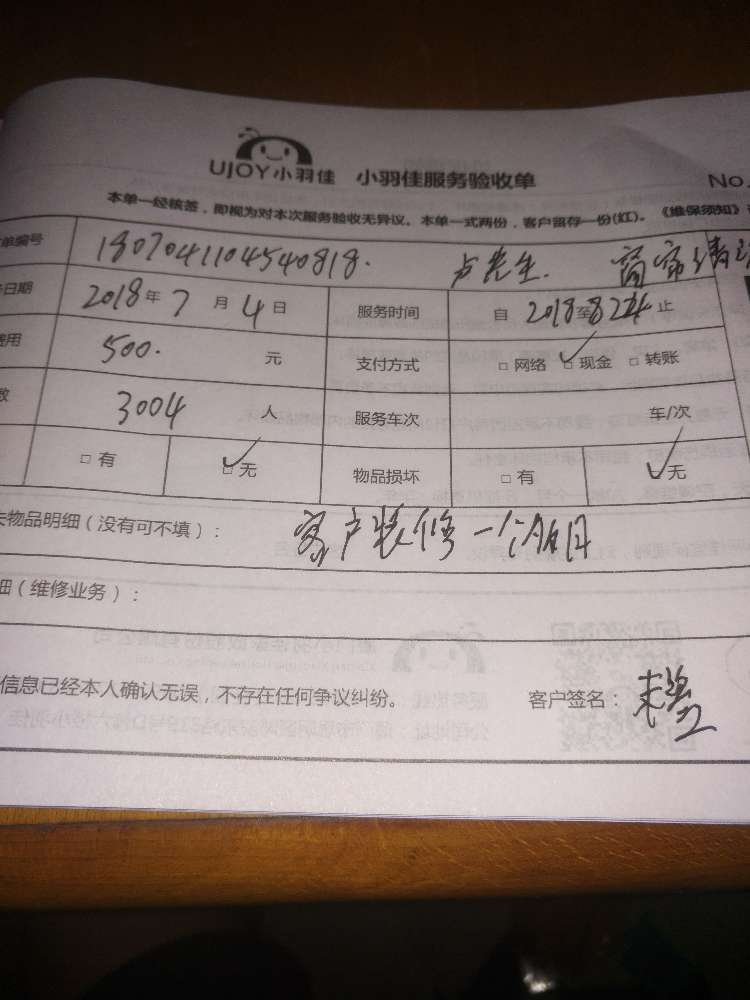 UJOY小羽佳 小羽佳服务验收单
No.
本单一经核签，即视为对本次服务验收无异议。本单一式两份，客户留存一份(红)。《维保须知》
单编号 1807041104540818. 卢先生. 窗帘清
日期 2018年7月4日 服务时间 自 2018至 止
费用 500. 元 支付方式 □网络 □现金 □转账
数 3004 人 服务车次 车/次
□有 □无 物品损坏 □有 □无
物品明细（没有可不填）： 客户装修一个月
细（维修业务）：
信息已经本人确认无误，不存在任何争议纠纷。 客户签名：